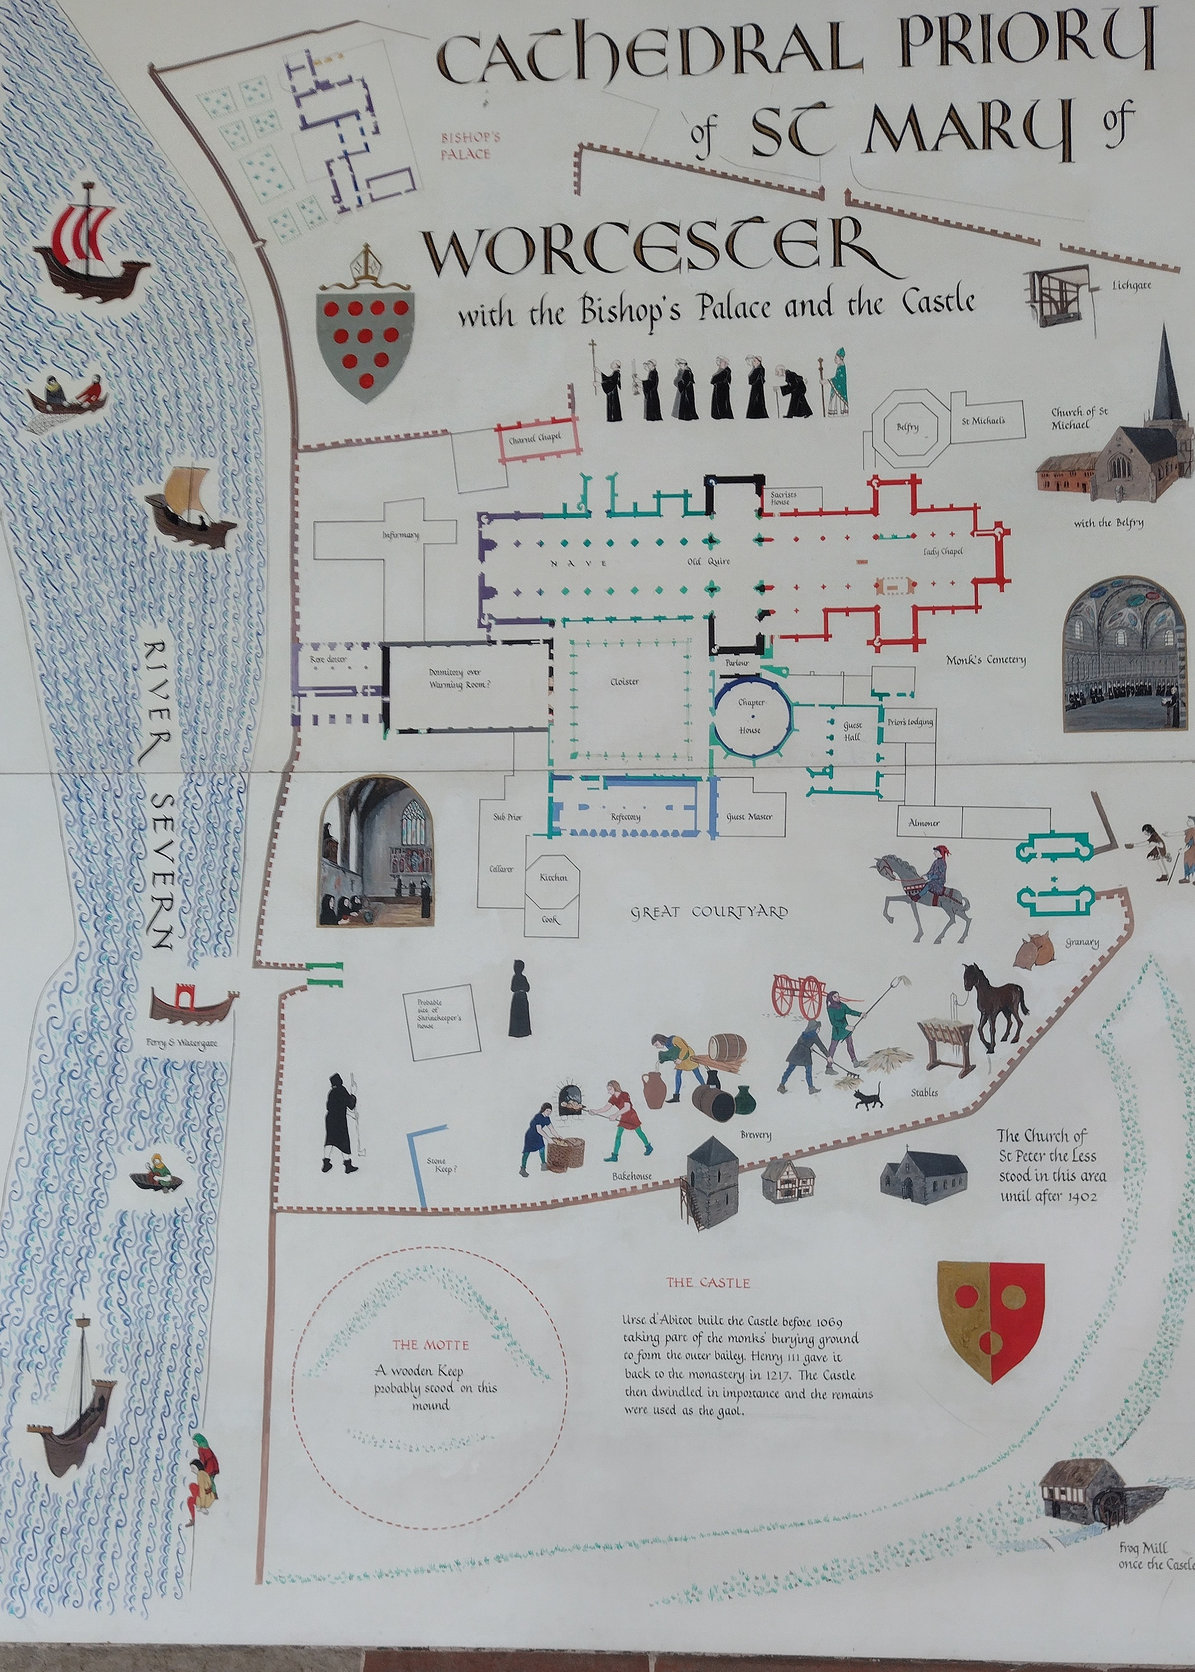 CATHEDRAL PRIORY
of ST MARY of
WORCESTER
with the Bishop's Palace and the Castle
BISHOP'S
PALACE
Lichgate
Church of St
Michael
with the Belfry
Charnel Chapel
Belfry
St Michaels
Sacrists
House
Infirmary
NAVE
Old Quire
Lady Chapel
Monk's Cemetery
Rere dorter
Dormitory over
Warming Room?
Cloister
Parlour
Chapter
House
Guest
Hall
Prior's Lodging
Sub Prior
Refectory
Guest Master
Almoner
Cellarer
Kitchen
Cook
GREAT COURTYARD
Granary
RIVER SEVERN
Ferry & Watergate
Probable
site of
Shrinekeeper's
house
Stables
Brewery
Bakehouse
Stone
Keep?
The Church of
St Peter the Less
stood in this area
until after 1402
THE MOTTE
A wooden Keep
probably stood on this
mound
THE CASTLE
Urse d'Abitot built the Castle before 1069
taking part of the monks' burying ground
to form the outer bailey. Henry III gave it
back to the monastery in 1217. The Castle
then dwindled in importance and the remains
were used as the gaol.
Frog Mill
once the Castle